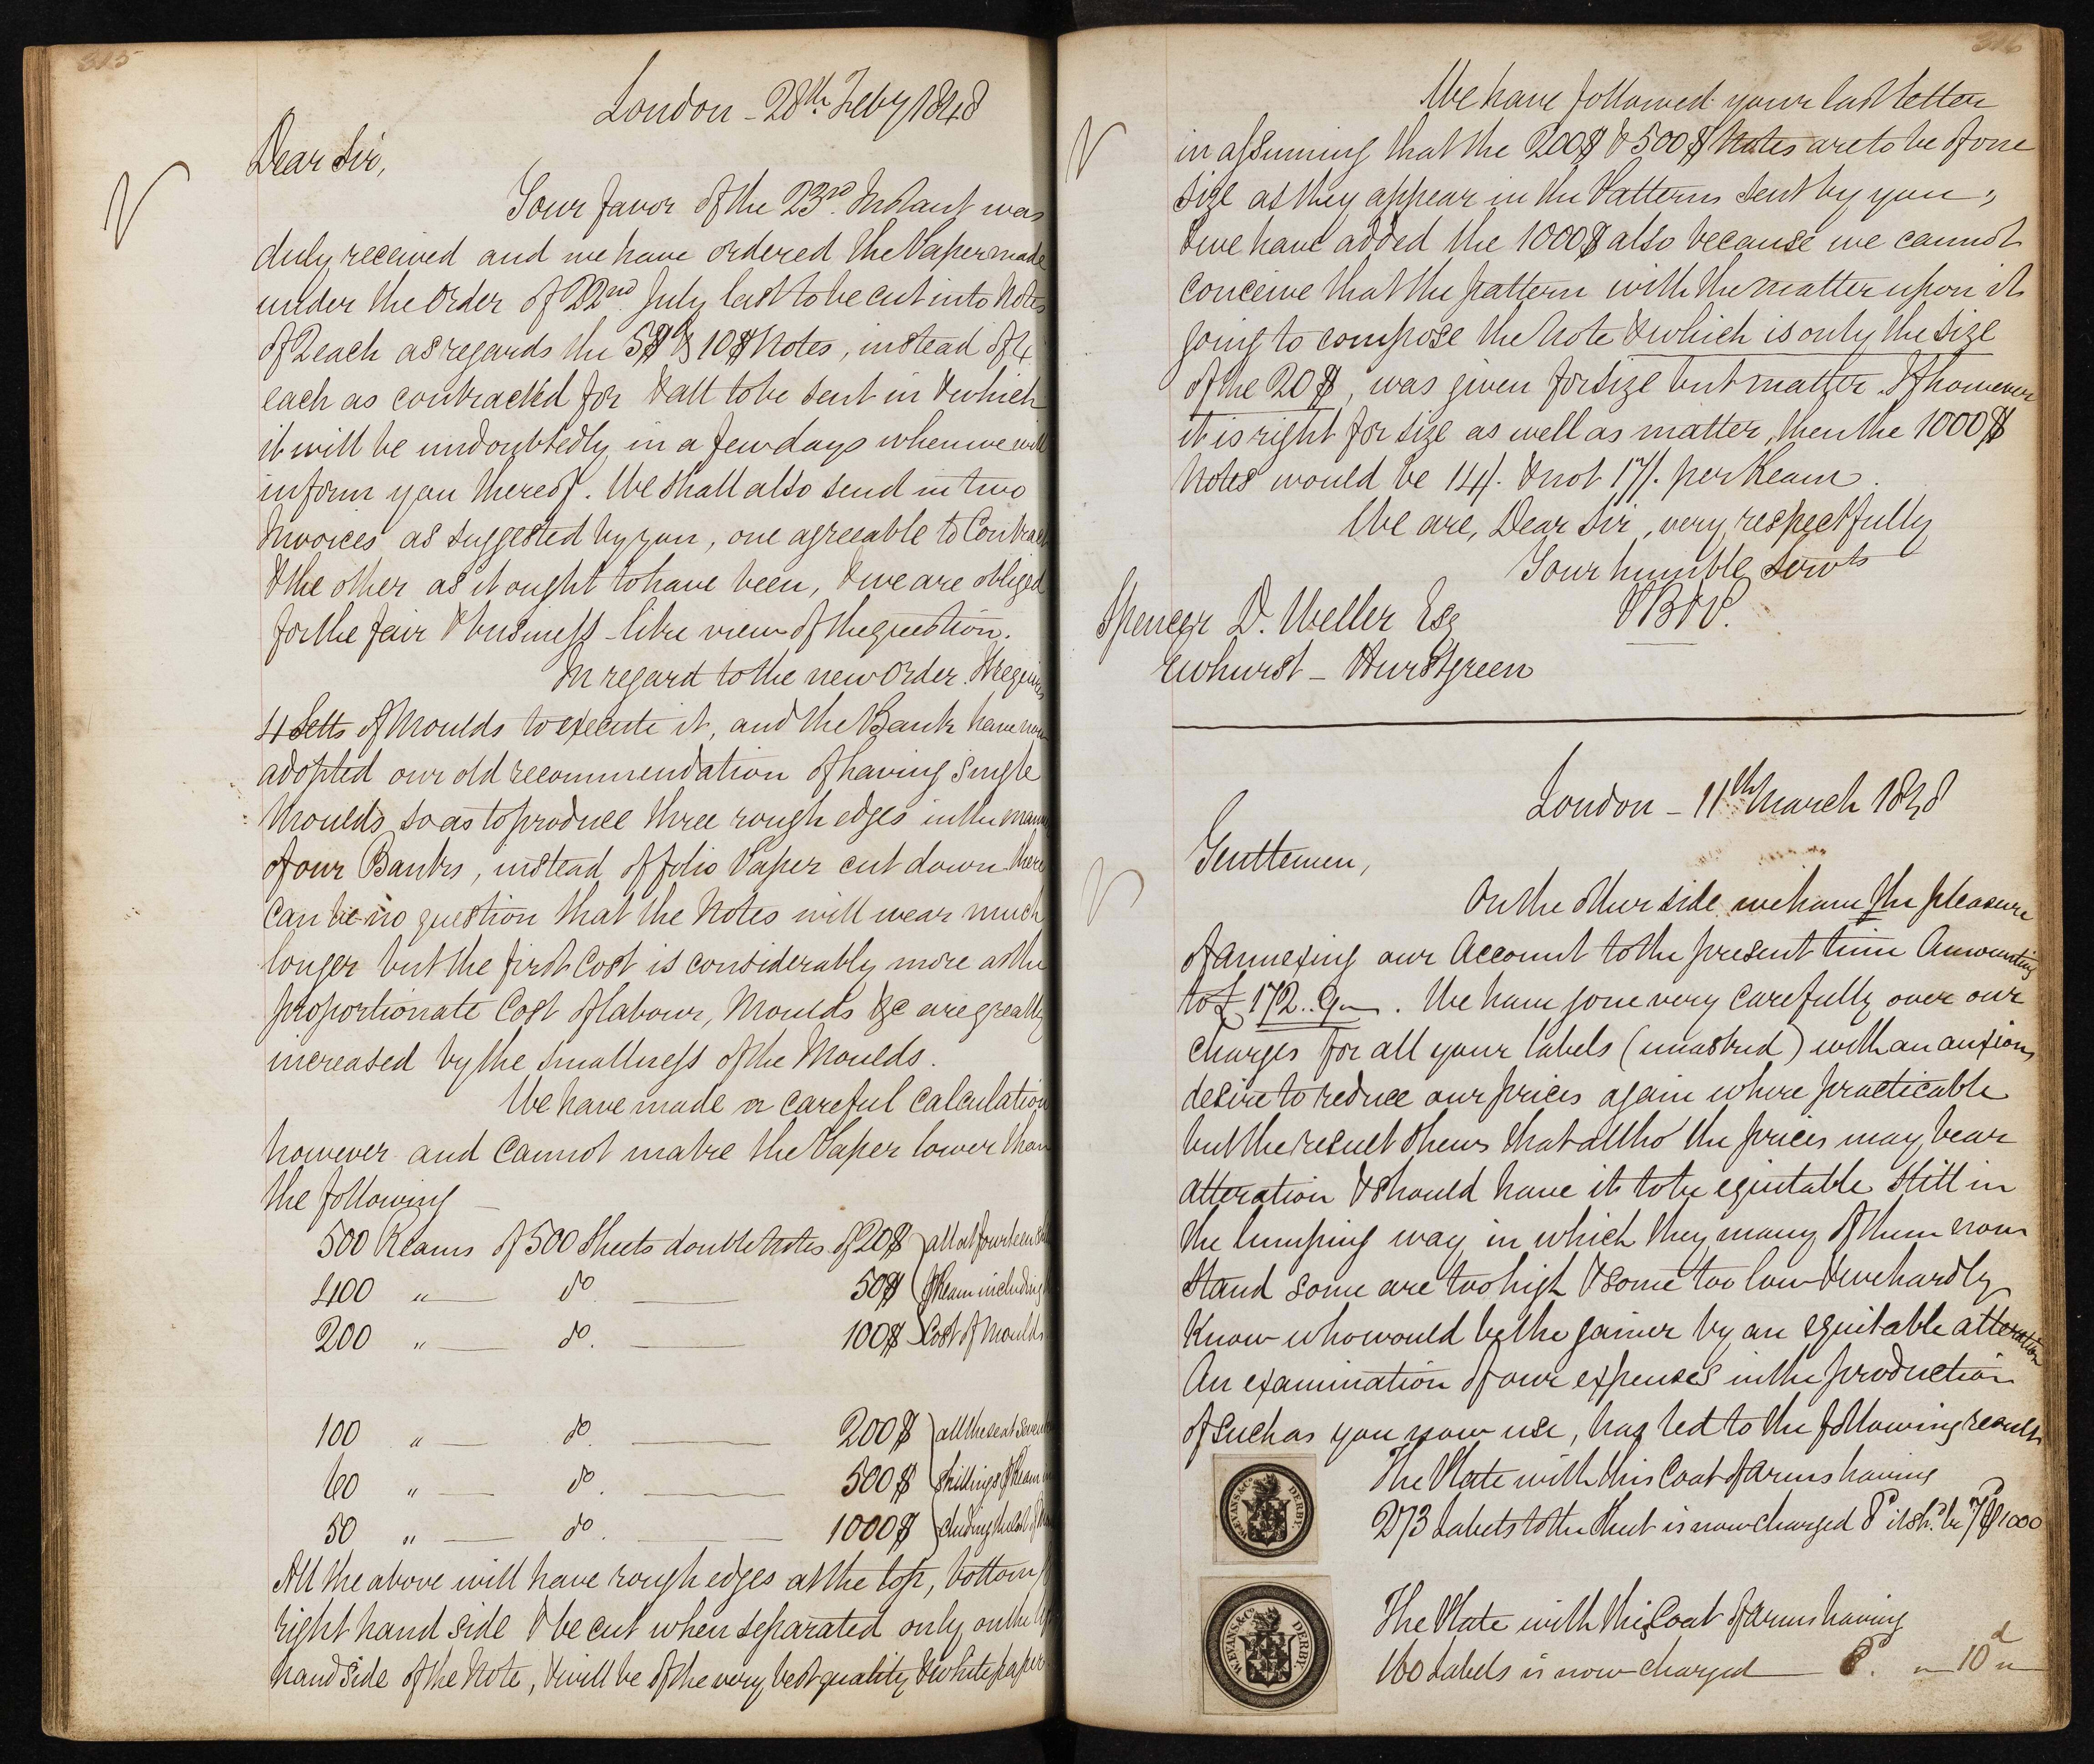 315
London - 28th. Feby 1848
Dear Sir,
Your favor of the 23rd. Instant was
duly received and we have ordered the Paper made
under the Order of 22nd July last to be cut into Notes
of 2 each as regards the 5$ & 10$ Notes, instead of 4
each as contracted for & all to be sent in & which
it will be undoubtedly in a few days when we will
inform you thereof. We shall also send in two
Invoices as suggested by you, one agreeable to Contract
& the other as it ought to have been, & we are obliged
for the fair & business-like view of the question.
In regard to the new Order. It requires
4 Setts of Moulds to execute it, and the Bank have now
adopted our old recommendation of having single
Moulds so as to produce three rough edges in the manner
of our Banks, instead of folio Paper cut down there
can be no question that the Notes will wear much
longer but the first Cost is considerably more as the
proportionate Cost of labour, Moulds &c are greatly
increased by the smallness of the Moulds.
We have made a careful Calculation
however and cannot make the Paper lower than
the following —
500 Reams of 500 Sheets double Notes of 20$ } all at fourteen
400 " — do — 50$ } P Ream including
200 " — do. — 100$ } Cost of Moulds
100 " — do. — 200$ } all these at Seventeen
60 " — do. — 500$ } Shillings P Ream in
50 " — do. — 1000$ } cluding the Cost of
All the above will have rough edges at the top, bottom &
right hand side & be cut when separated only on the left
hand side of the Note, & will be of the very best quality & white paper
316
We have followed your last letter
in assuming that the 200$ & 500$ Notes are to be of one
size as they appear in the Patterns sent by you,
& we have added the 1000$ also because we cannot
conceive that the pattern with the matter upon it
going to compose the Note & which is only the size
of the 20$, was given for size but matter. If however
it is right for size as well as matter, then the 1000$
Notes would be 14/. & not 17/. per Ream.
We are, Dear Sir, very respectfully
Your humble Servts
PB&P.
Spencer D. Weller Esq
Ewhurst - Hurstgreen
London - 11th March 1848
Gentlemen,
On the other side we have the pleasure
of annexing our Account to the present time Amounting
to £172..9.— . We have gone very carefully over our
charges for all your labels (unasked) with an anxious
desire to reduce our prices again where practicable
but the result shews that altho' the prices may bear
alteration & should have it to be equitable still in
the lumping way in which they many of them now
stand some are too high & some too low & we hardly
know who would be the gainer by an equitable alteration
An examination of our expenses in the production
of such as you now use, has led to the following result
The Plate with this Coat of Arms having
273 Labels to the Sheet is now charged 8d it shd. be 7d P 1000
W. EVANS & Co. DERBY.
The Plate with this Coat of Arms having
160 Labels is now charged — 8d. " 10d "
W. EVANS & Co. DERBY.